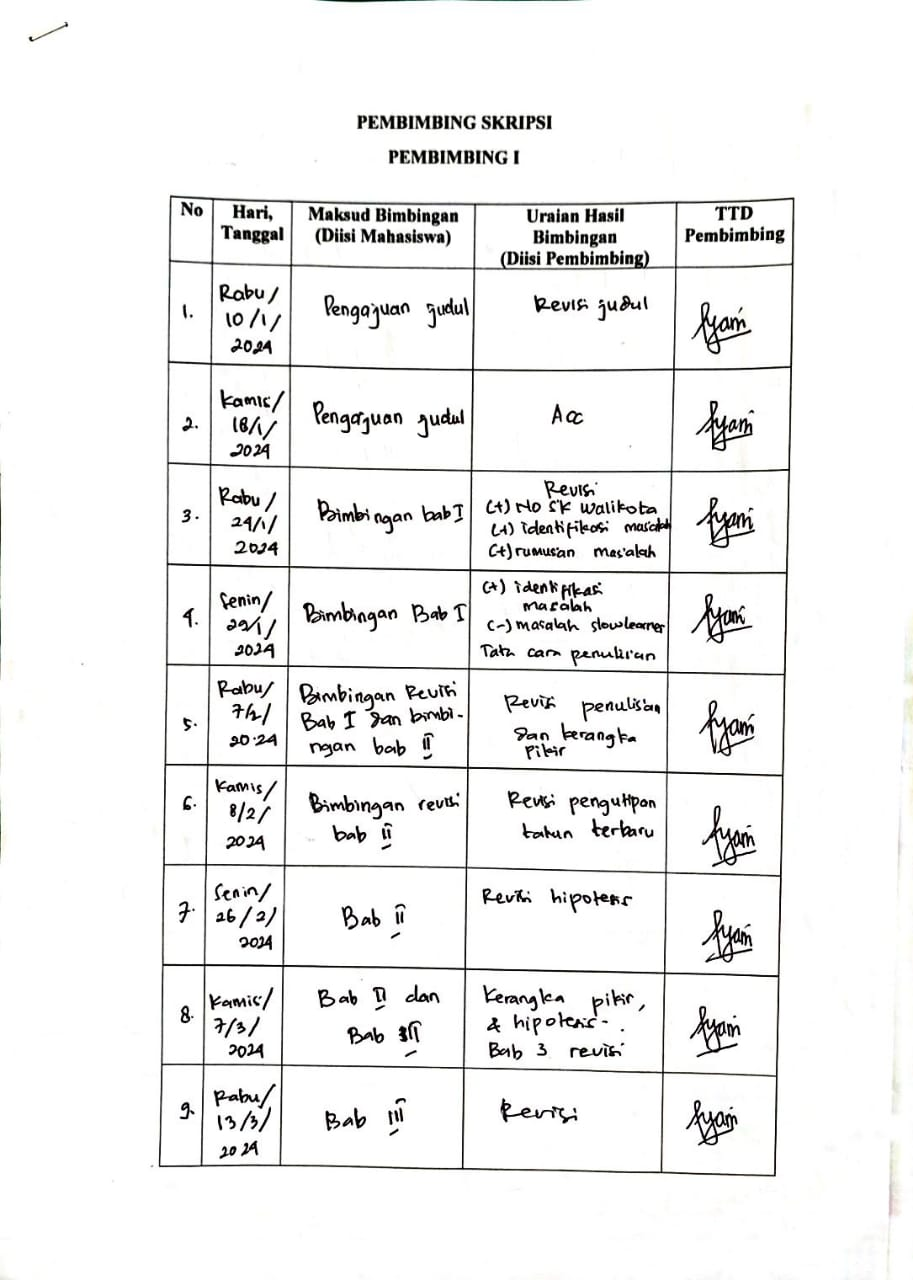 PEMBIMBING SKRIPSI
PEMBIMBING I
No
Hari,
Tanggal
Maksud Bimbingan
(Diisi Mahasiswa)
Uraian Hasil
Bimbingan
(Diisi Pembimbing)
TTD
Pembimbing
1.
Rabu/
10/1/
2024
Pengajuan judul
Revisi judul
2.
Kamis/
18/1/
2024
Pengajuan judul
Acc
3.
Rabu/
24/1/
2024
Bimbingan bab I
Revisi
(+) No SK walikota
(+) identifikasi masalah
(+) rumusan masalah
4.
Senin/
29/1/
2024
Bimbingan Bab I
(+) identifikasi
masalah
(-) masalah slowlearner
Tata cara penulisan
5.
Rabu/
7/2/
2024
Bimbingan Revisi
Bab I dan bimbi-
ngan bab II
Revisi penulisan
dan kerangka
pikir
6.
Kamis/
8/2/
2024
Bimbingan revisi
bab II
Revisi pengutipan
tahun terbaru
7.
Senin/
26/2/
2024
Bab II
Revisi hipotesis
8.
Kamis/
7/3/
2024
Bab II dan
Bab III
Kerangka pikir,
& hipotesis-.
Bab 3 revisi
9.
Rabu/
13/3/
2024
Bab III
Revisi